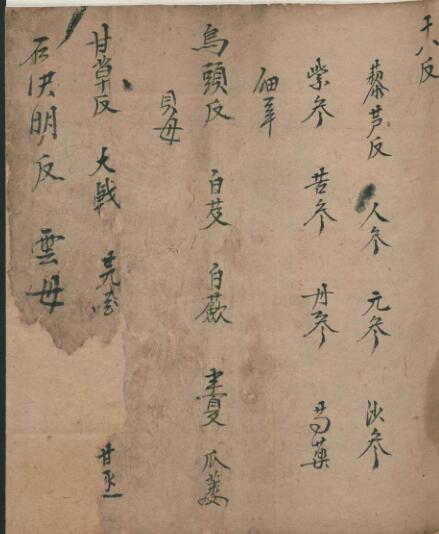 十八反
藜芦反 人参 元参 沙参
紫参 苦参 丹参 芍藥
細辛
烏頭反 白芨 白蘞 半夏 瓜蔞
貝母
甘草反 大戟 芫花 甘遂
石决明反 雲母